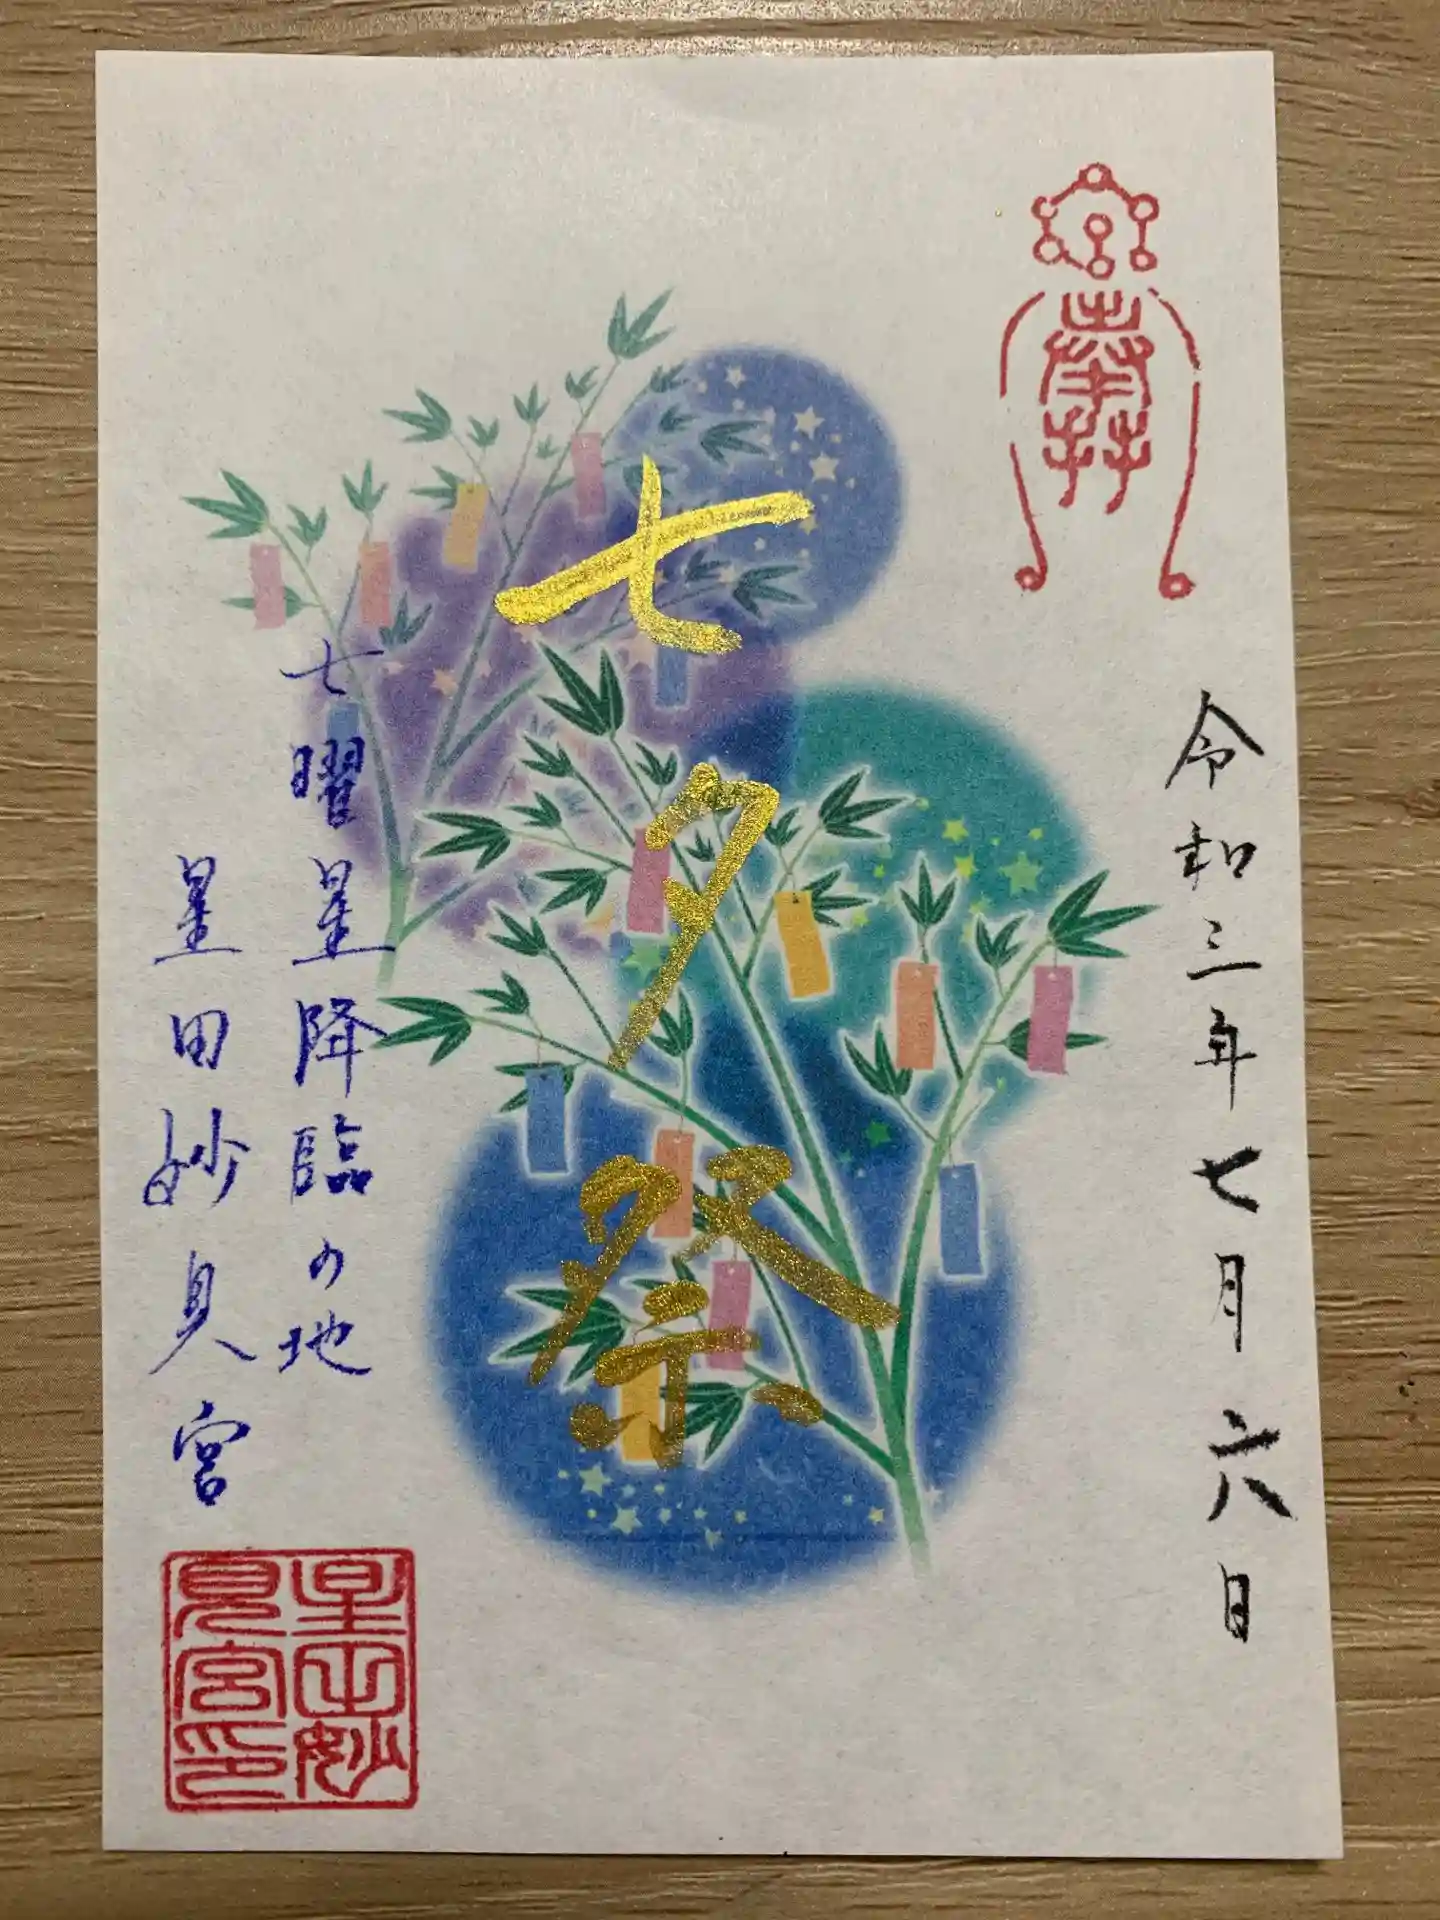 令和三年七月六日
七夕祭
七曜星降臨の地
星田妙見宮
星田妙
見宮印